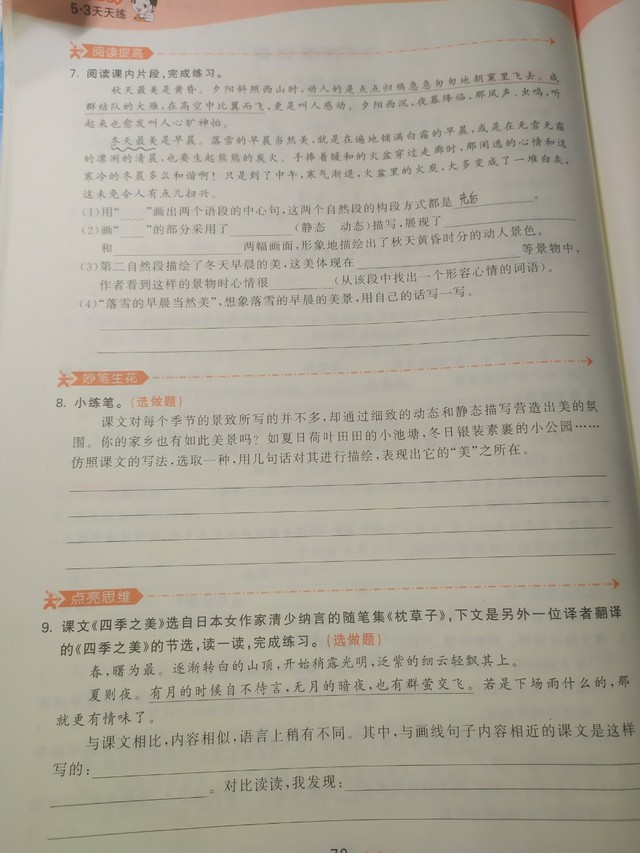 5·3天天练
阅读提高
7. 阅读课内片段,完成练习。
秋天最美是黄昏。夕阳斜照西山时,动人的是点点归鸦急急匆匆地朝窠里飞去。成
群结队的大雁,在高空中比翼而飞,更是叫人感动。夕阳西沉,夜幕降临,那风声、虫鸣,听
起来也愈发叫人心旷神怡。
冬天最美是早晨。落雪的早晨当然美,就是在遍地铺满白霜的早晨,或是在无雪无霜
的凛冽的清晨,也要生起熊熊的炭火。手捧着暖和的火盆穿过走廊时,那闲逸的心情和这
寒冷的冬晨多么和谐啊!只是到了中午,寒气渐退,火盆里的火炭,大多变成了一堆白灰,
这未免令人有点儿扫兴。
(1)用“﹏﹏”画出两个语段的中心句,这两个自然段的构段方式都是 先后 。
(2)画“____”的部分采用了________(静态 动态)描写,展现了____________
和____________两幅画面,形象地描绘出了秋天黄昏时分的动人景色。
(3)第二自然段描绘了冬天早晨的美,这美体现在____________等景物中,
作者看到这样的景物时心情很________(从该段中找出一个形容心情的词语)。
(4)“落雪的早晨当然美”,想象落雪的早晨的美景,用自己的话写一写。
妙笔生花
8. 小练笔。(选做题)
课文对每个季节的景致所写的并不多,却通过细致的动态和静态描写营造出美的氛
围。你的家乡也有如此美景吗?如夏日荷叶田田的小池塘,冬日银装素裹的小公园……
仿照课文的写法,选取一种,用几句话对其进行描绘,表现出它的“美”之所在。
点亮思维
9. 课文《四季之美》选自日本女作家清少纳言的随笔集《枕草子》,下文是另外一位译者翻译
的《四季之美》的节选,读一读,完成练习。(选做题)
春,曙为最。逐渐转白的山顶,开始稍露光明,泛紫的细云轻飘其上。
夏则夜。有月的时候自不待言,无月的暗夜,也有群萤交飞。若是下场雨什么的,那
就更有情味了。
与课文相比,内容相似,语言上稍有不同。其中,与画线句子内容相近的课文是这样
写的:____________
____________。对比读读,我发现:____________